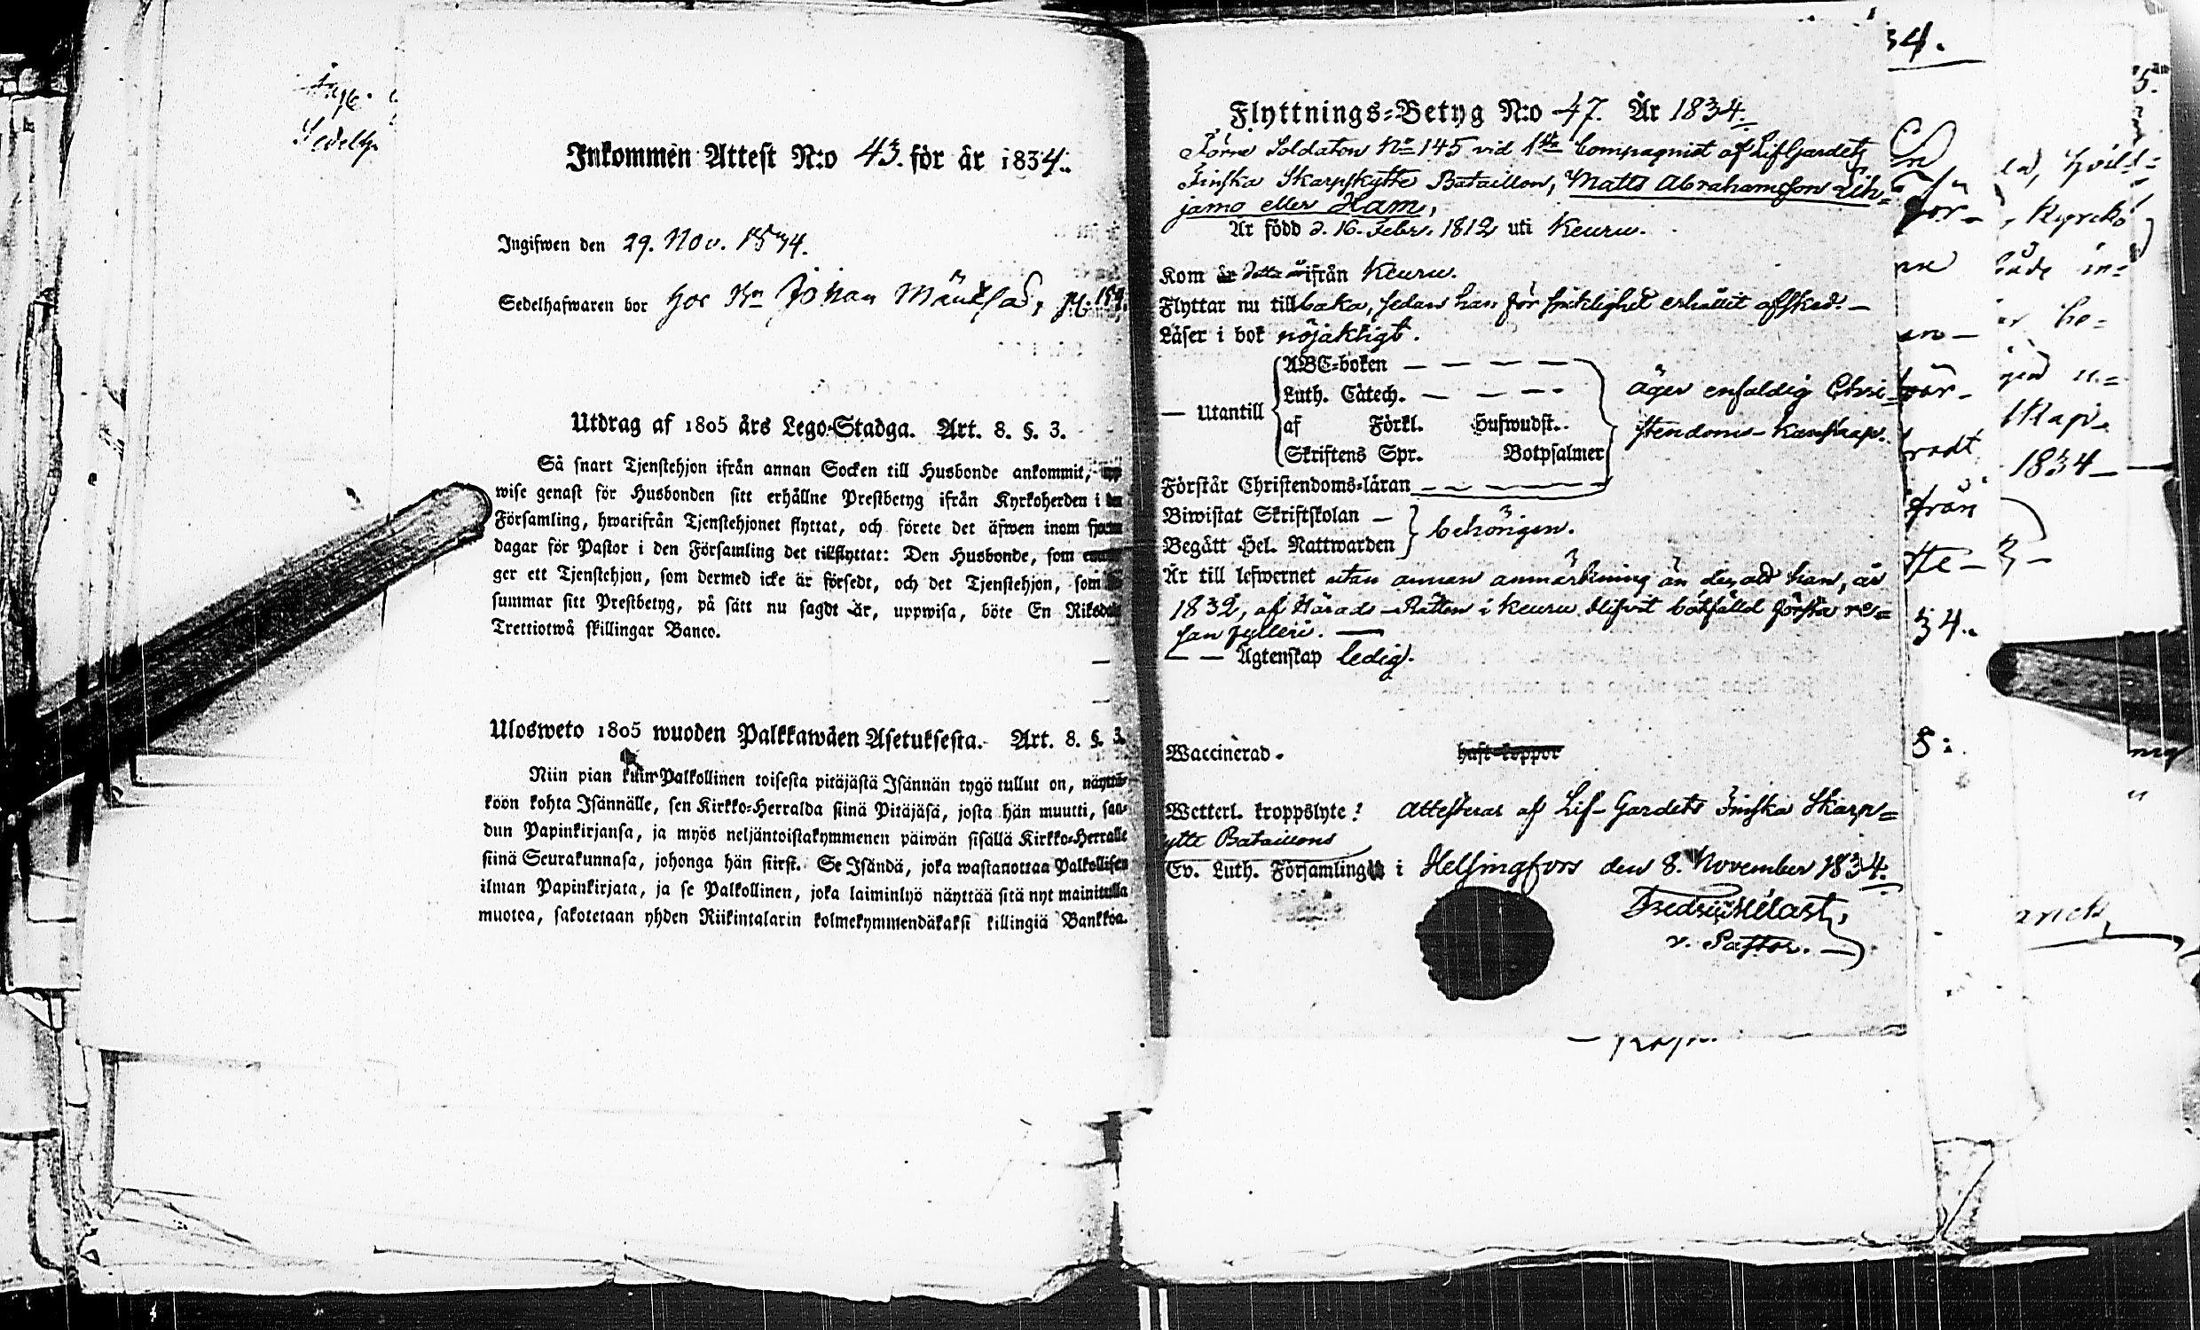 Sedelh
Inkommen Attest N:o 43. för år 1834.
Ingifwen den 29. Nov. 1834.
Sedelhafwaren bor hos Johan
Utdrag af 1805 års Lego-Stadga. Art. 8. §. 3.
Så snart Tjenstehjon ifrån annan Socken till Husbonde ankommit, upp
wise genast för Husbonden sitt erhållne Prestbetyg ifrån Kyrkoherden i den
Församling, hwarifrån Tjenstehjonet flyttat, och förete det äfwen inom fjorton
dagar för Pastor i den Församling det tillflyttat: Den Husbonde, som
ger ett Tjenstehjon, som dermed icke är försedt, och det Tjenstehjon, som
summar sitt Prestbetyg, på sätt nu sagdt är, uppwisa, böte En Riksdaler
Trettiotwå skillingar Banco.
Ulosweto 1805 wuoden Palkkawäen Asetuksesta. Art. 8. §. 3.
Niin pian kuin Palkollinen toisesta pitäjästä Isännän tygö tullut on, näyttä-
köön kohta Isännälle, sen Kirkko-Herralda siinä Pitäjäsä, josta hän muutti, saa-
dun Papinkirjansa, ja myös neljäntoistakymmenen päiwän sisällä Kirkko-Herralle
siinä Seurakunnasa, johonga hän siirst. Se Isändä, joka wastanottaa Palkollisen
ilman Papinkirjata, ja se Palkollinen, joka laiminlyö näyttää sitä nyt mainitulla
muotoa, sakotetaan yhden Riikintalarin kolmekymmendäkaksi killingiä Bankkoa.
Flyttnings-Betyg N:o 47. År 1834.
Förre Soldaten No 145 vid 1sta Compagniet af LifGardets
Finska Skarpskytte Bataillon, Matts Abrahamsson Leh-
jamo eller Ham,
Är född d. 16. Febr. 1812 uti Keuru.
Kom år detta år ifrån Keuru.
Flyttar nu tillbaka, sedan han för sjuklighet erhållit afsked. —
Läser i bok nöjaktigt.
ABC-boken — — — —
Luth. Catech. — — — —
— Utantill af Förkl. Hufwudst.
Skriftens Spr. Botpsalmer
äger enfaldig Chri-
stendoms-kunskap.
Förstår Christendoms-läran — — — — —
Biwistat Skriftskolan —
Begått Hel. Nattwarden
behörigen.
Är till lefwernet utan annan anmärkning än den, att han, år
1832, af Härads-Rätten i Keuru blifvit bötfälld första re-
san fylleri. —
— — Ägtenskap ledig.
Waccinerad. haft koppor
Wetterl. kroppslyte: Attesteras af Lif-Gardets Finska Skarp-
ytte Bataillons
Ev. Luth. Församling i Helsingfors den 8. November 1834.
v. Pastor.
34.
1834
från
34.